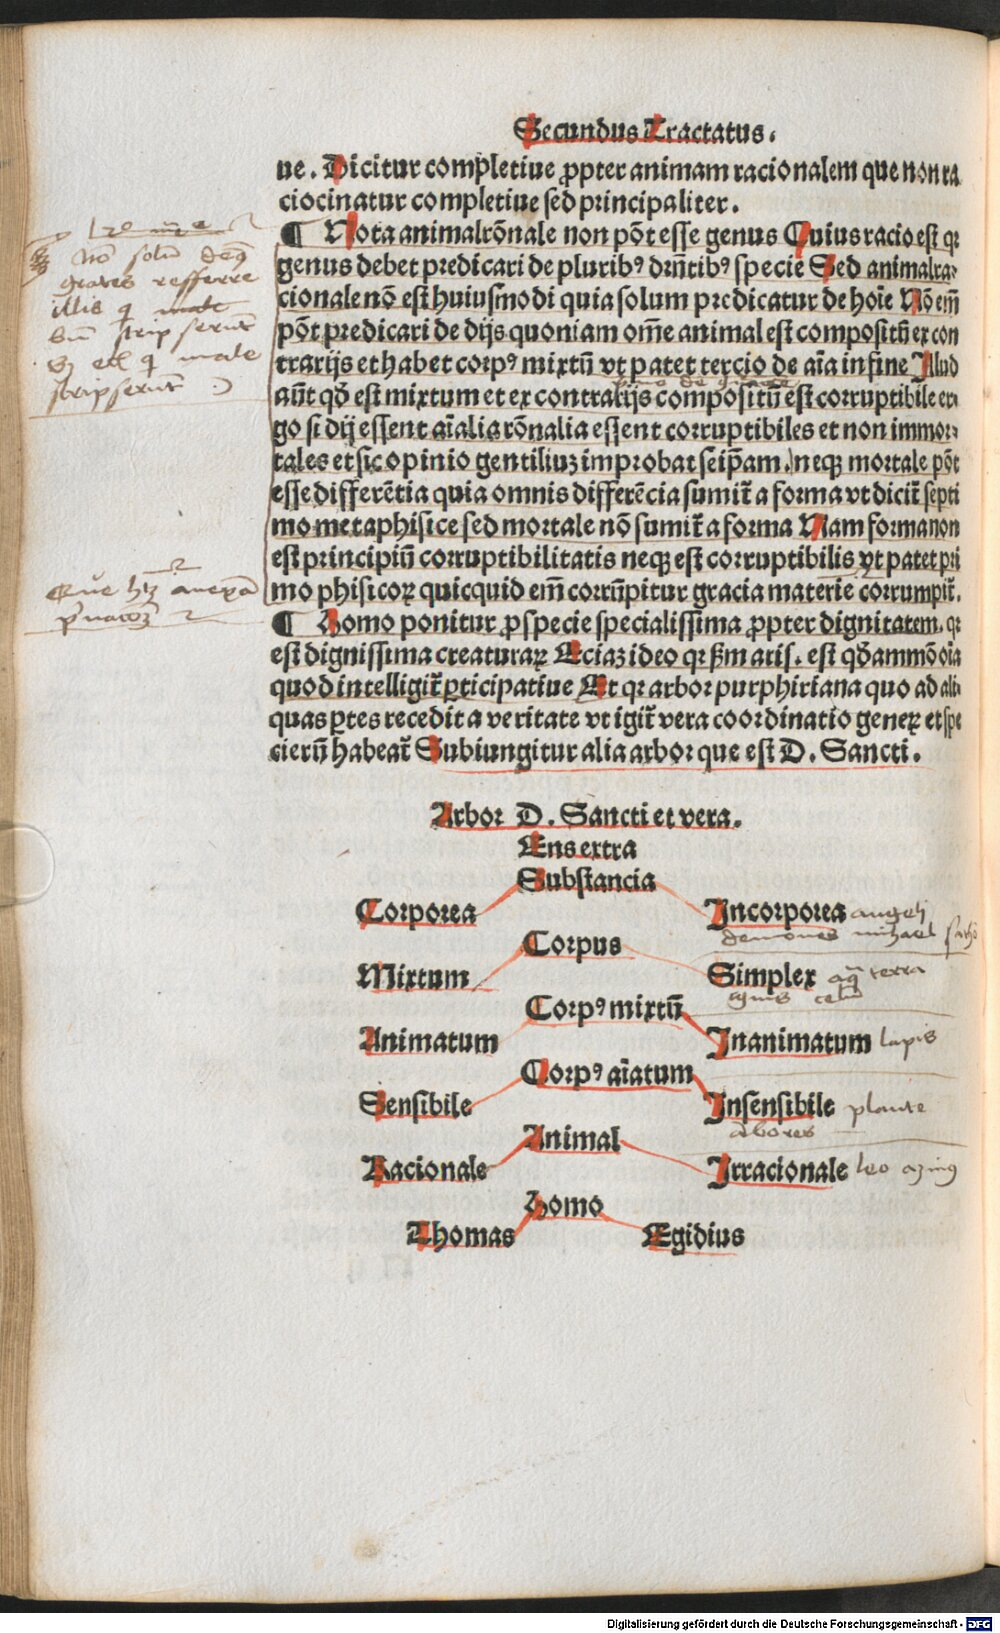 Secundus Tractatus.
ue. Dicitur completiue ꝓpter animam racionalem que non ra
ciocinatur completiue sed principaliter.
¶ Nota animal rõnale non põt esse genus Cuius racio est qꝛ
genus debet predicari de pluribꝰ drñtibꝰ specie Sed animal ra⸗
cionale nõ est huiusmodi quia solum predicatur de hoĩe Nõ em̃
põt predicari de dijs quoniam om̃e animal est compositũ ex con
trarijs et habet corpꝰ mixtũ vt patet tercio de aĩa in fine Illud
aũt qḋ est mixtum et ex contrarijs compositũ est corruptibile er⸗
go si dij essent aĩalia rõnalia essent corruptibiles et non immor⸗
tales et sic opinio gentiliuꝫ improbat seip̃am. neqꝫ mortale põt
esse differẽtia quia omnis differẽcia sumit̃ a forma vt dicit̃ septi
mo metaphisice sed mortale nõ sumit̃ a forma Nam forma non
est principiũ corruptibilitatis neqꝫ est corruptibilis vt patet pri
mo phisicoꝝ quicquid em̃ corrũpitur gracia materie corrumpit̃.
¶ Homo ponitur ꝓ specie specialissima ꝓpter dignitatem. qꝛ
est dignissima creaturaꝝ Eciaꝫ ideo qꝛ ẞm aris. est qḋammõ oĩa
quod intelligit̃ ꝑticipatiue Et qꝛ arbor purphiriana quo ad ali⸗
quas ꝑtes recedit a veritate vt igit̃ vera coordinatio geneꝝ et spe
cierũ habeat̃ Subiungitur alia arbor que est D. Sancti.
Nõ solũ
grates refferre
illis q̃ male
bñ scripserũt
male
scripserũt
Arbor D. Sancti et vera.
Ens extra
Substancia
Corporea Incorporea angeli
demones michael
Corpus
Mixtum Simplex aq̃ terra
ignis celũ
Corpꝰ mixtũ
Animatum Inanimatum lapis
Corpꝰ aĩatum
Sensibile Insensibile plante
arbores
Animal
Racionale Irracionale leo aẓinꝰ
Homo
Thomas Egidius
Digitalisierung gefördert durch die Deutsche Forschungsgemeinschaft - DFG